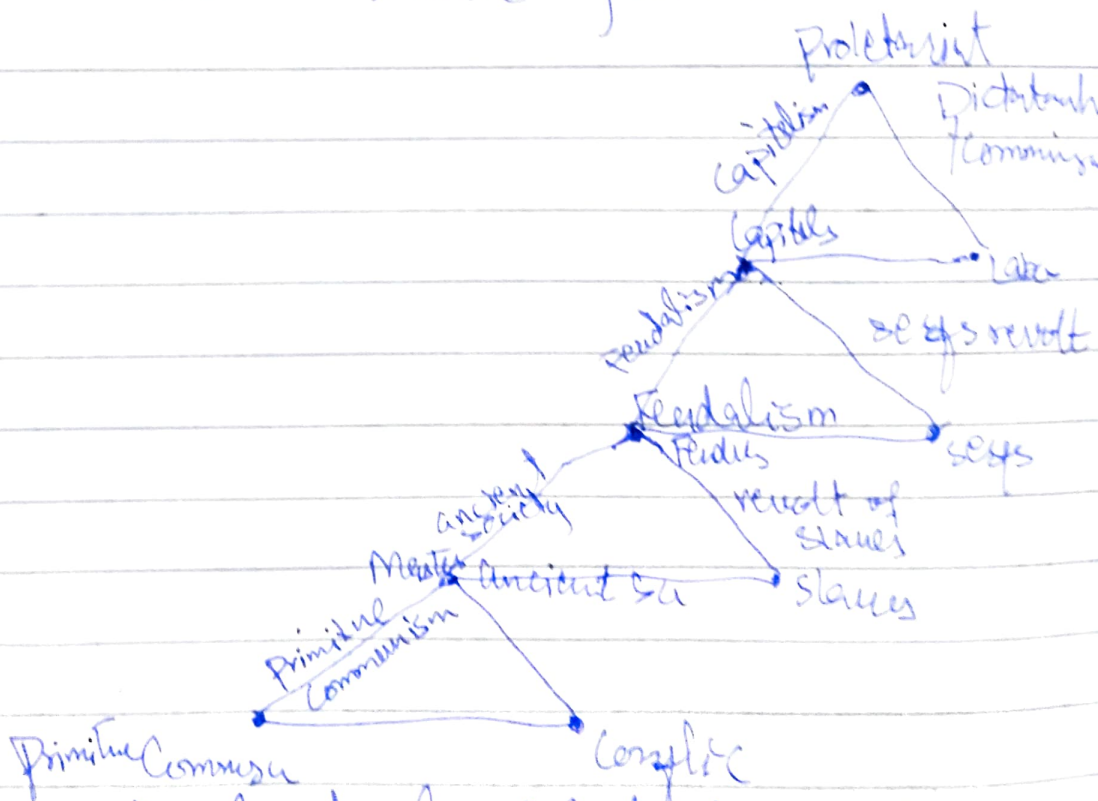 Proletariat
Dictatorsh
/Commnism
Capitalism
Capitals
Labr
Feudalism
serfs revolt
Feudalism
Feudus
serfs
ancient
society
revolt of
slaves
Master
ancient So
slaves
Primitive
Communism
Primitive Commusn
Conflic